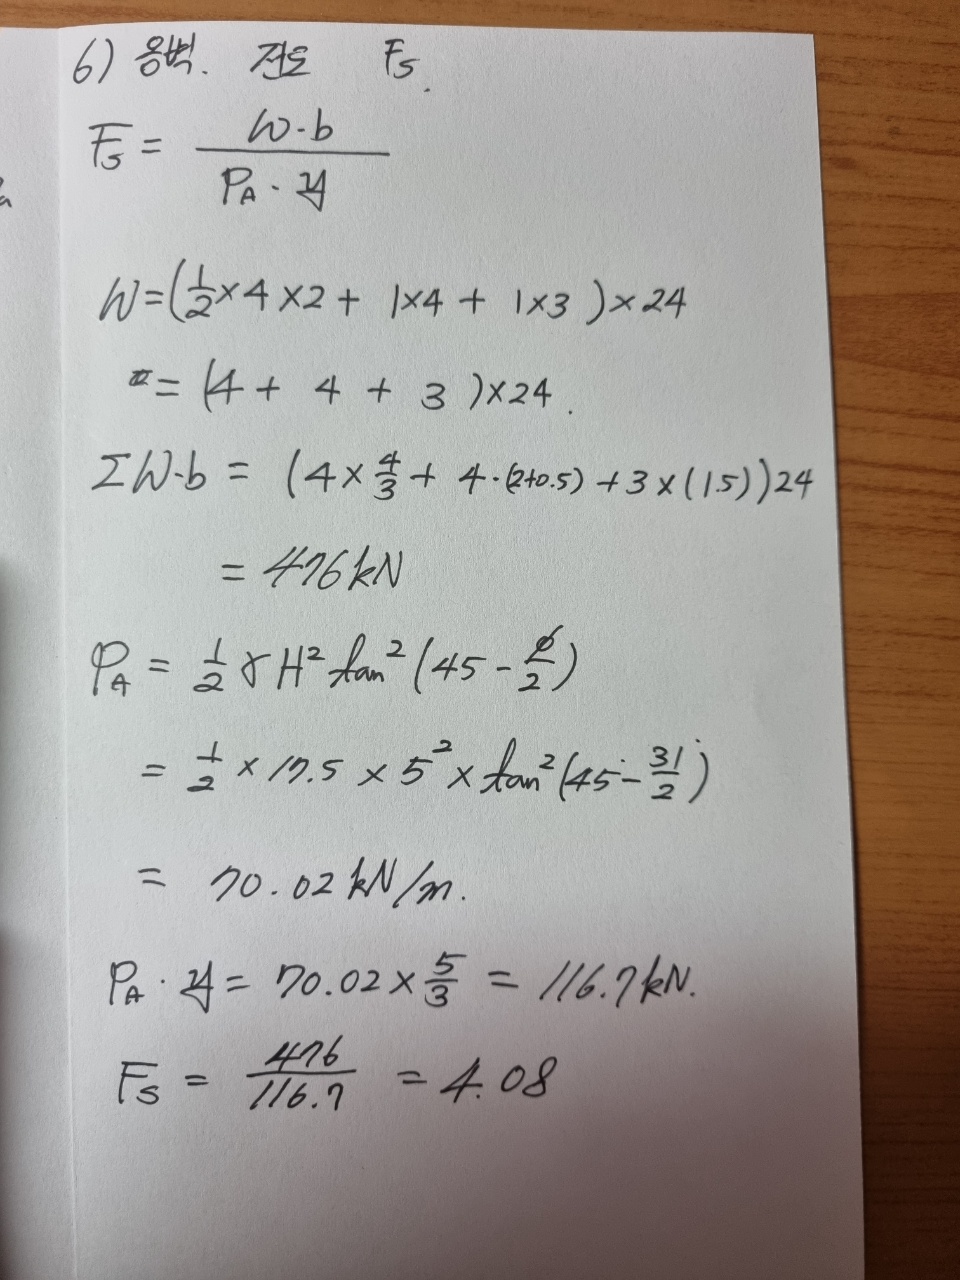 6) 옹벽. 전도 Fs.
Fs = W·b / PA·y
W=(1/2×4×2+ 1×4+ 1×3)×24
= (4+ 4 + 3)×24.
ΣW·b = (4×4/3+ 4·(2+0.5)+3×(1.5))24
= 476kN
PA = 1/2 γH² tan²(45-ø/2)
= 1/2 × 17.5 × 5² × tan²(45°-31°/2)
= 70.02kN/m.
PA·y = 70.02×5/3 = 116.7kN.
Fs = 476/116.7 = 4.08